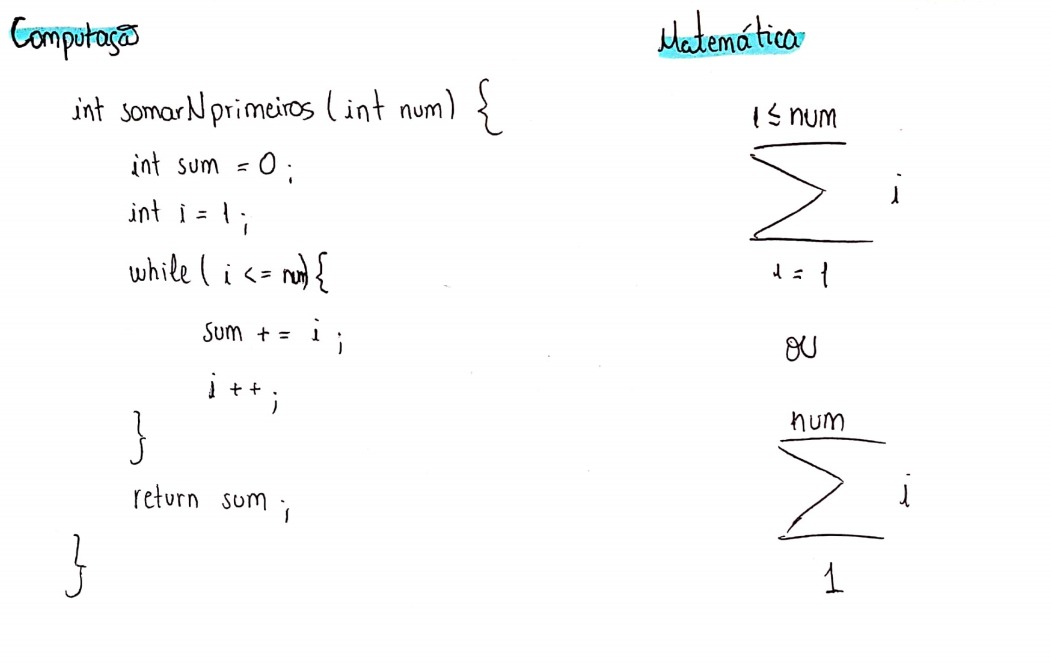 Computação
int somarNprimeiros (int num) {
int sum = 0;
int i = 1;
while ( i <= num) {
sum += i ;
i ++ ;
}
return sum ;
}
Matemática
1 ≤ num
∑ i
i = 1
ou
num
∑ i
1